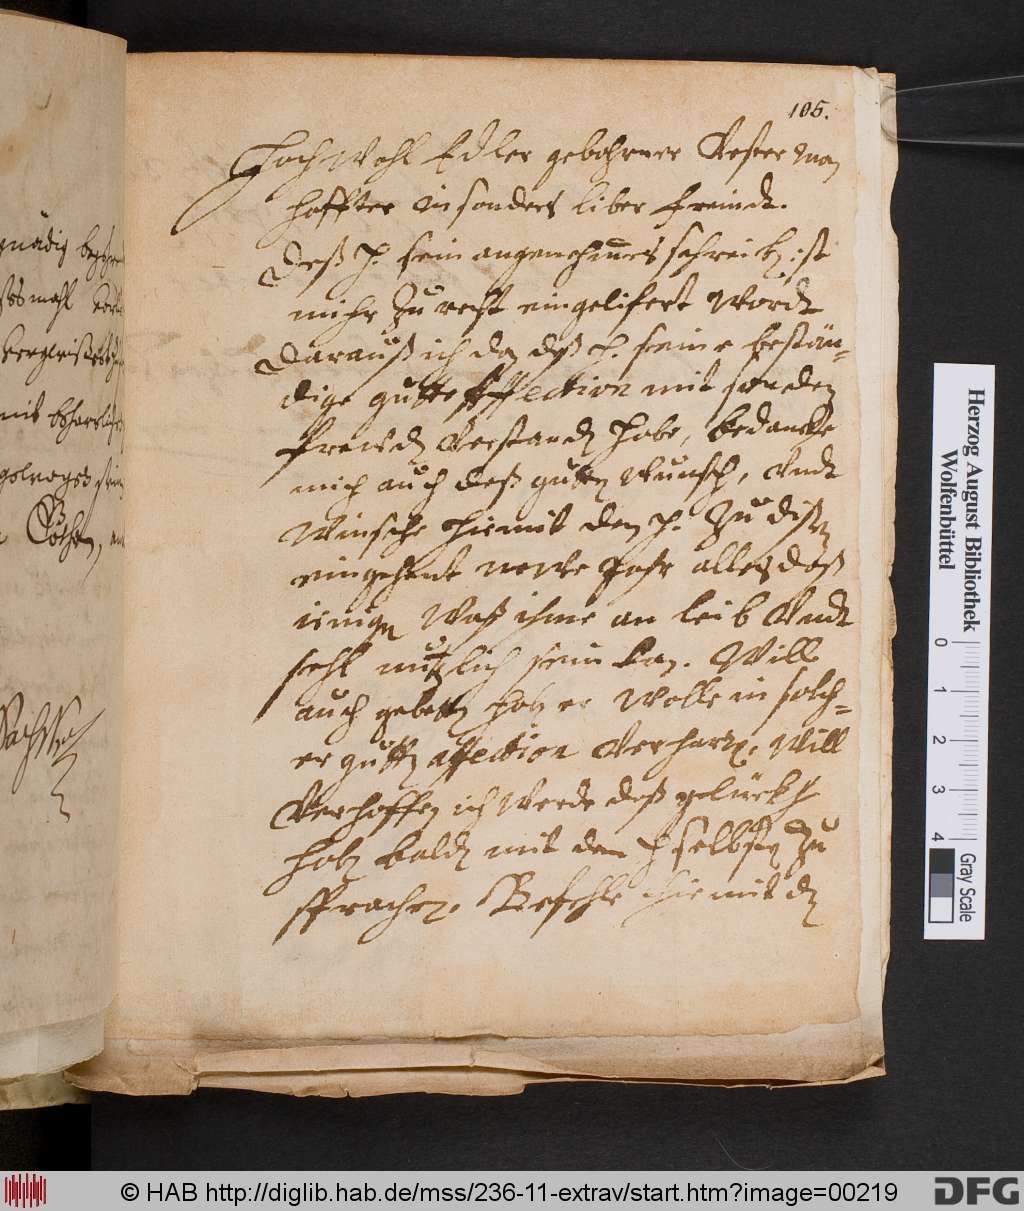 105.
Hoch Wohl Edler gebohrner Vester Man
hoffter insonders liber freindt.
Deß H. sein angenehmes schreiben ist
mihr zu recht eingelifert Wordt
darauß ich dan deß H. seine bestän-
dige gutte affection mit sonden
freudn Verstandn habe, bedancke
mich auch deß gutten Wunsch, Vndt
Winsche hiemit dem H. Zu disen
eingehent newe Jahr alles daß
ienige Waß ihme an leib Vndt
sehl nutzlich sein kan. Will
auch gebetten habn er Wolle in solch-
er gutten affection Verharn. Will
Verhoffen ich Werde daß gelück
habn baldt mit dem H selbsten Zu
sprachen. Befehle hiemit dn
gnädig
mahl
Cöthen,
Herzog August Bibliothek
Wolfenbüttel
0 1 2 3 4
Gray Scale
© HAB http://diglib.hab.de/mss/236-11-extrav/start.htm?image=00219
DFG